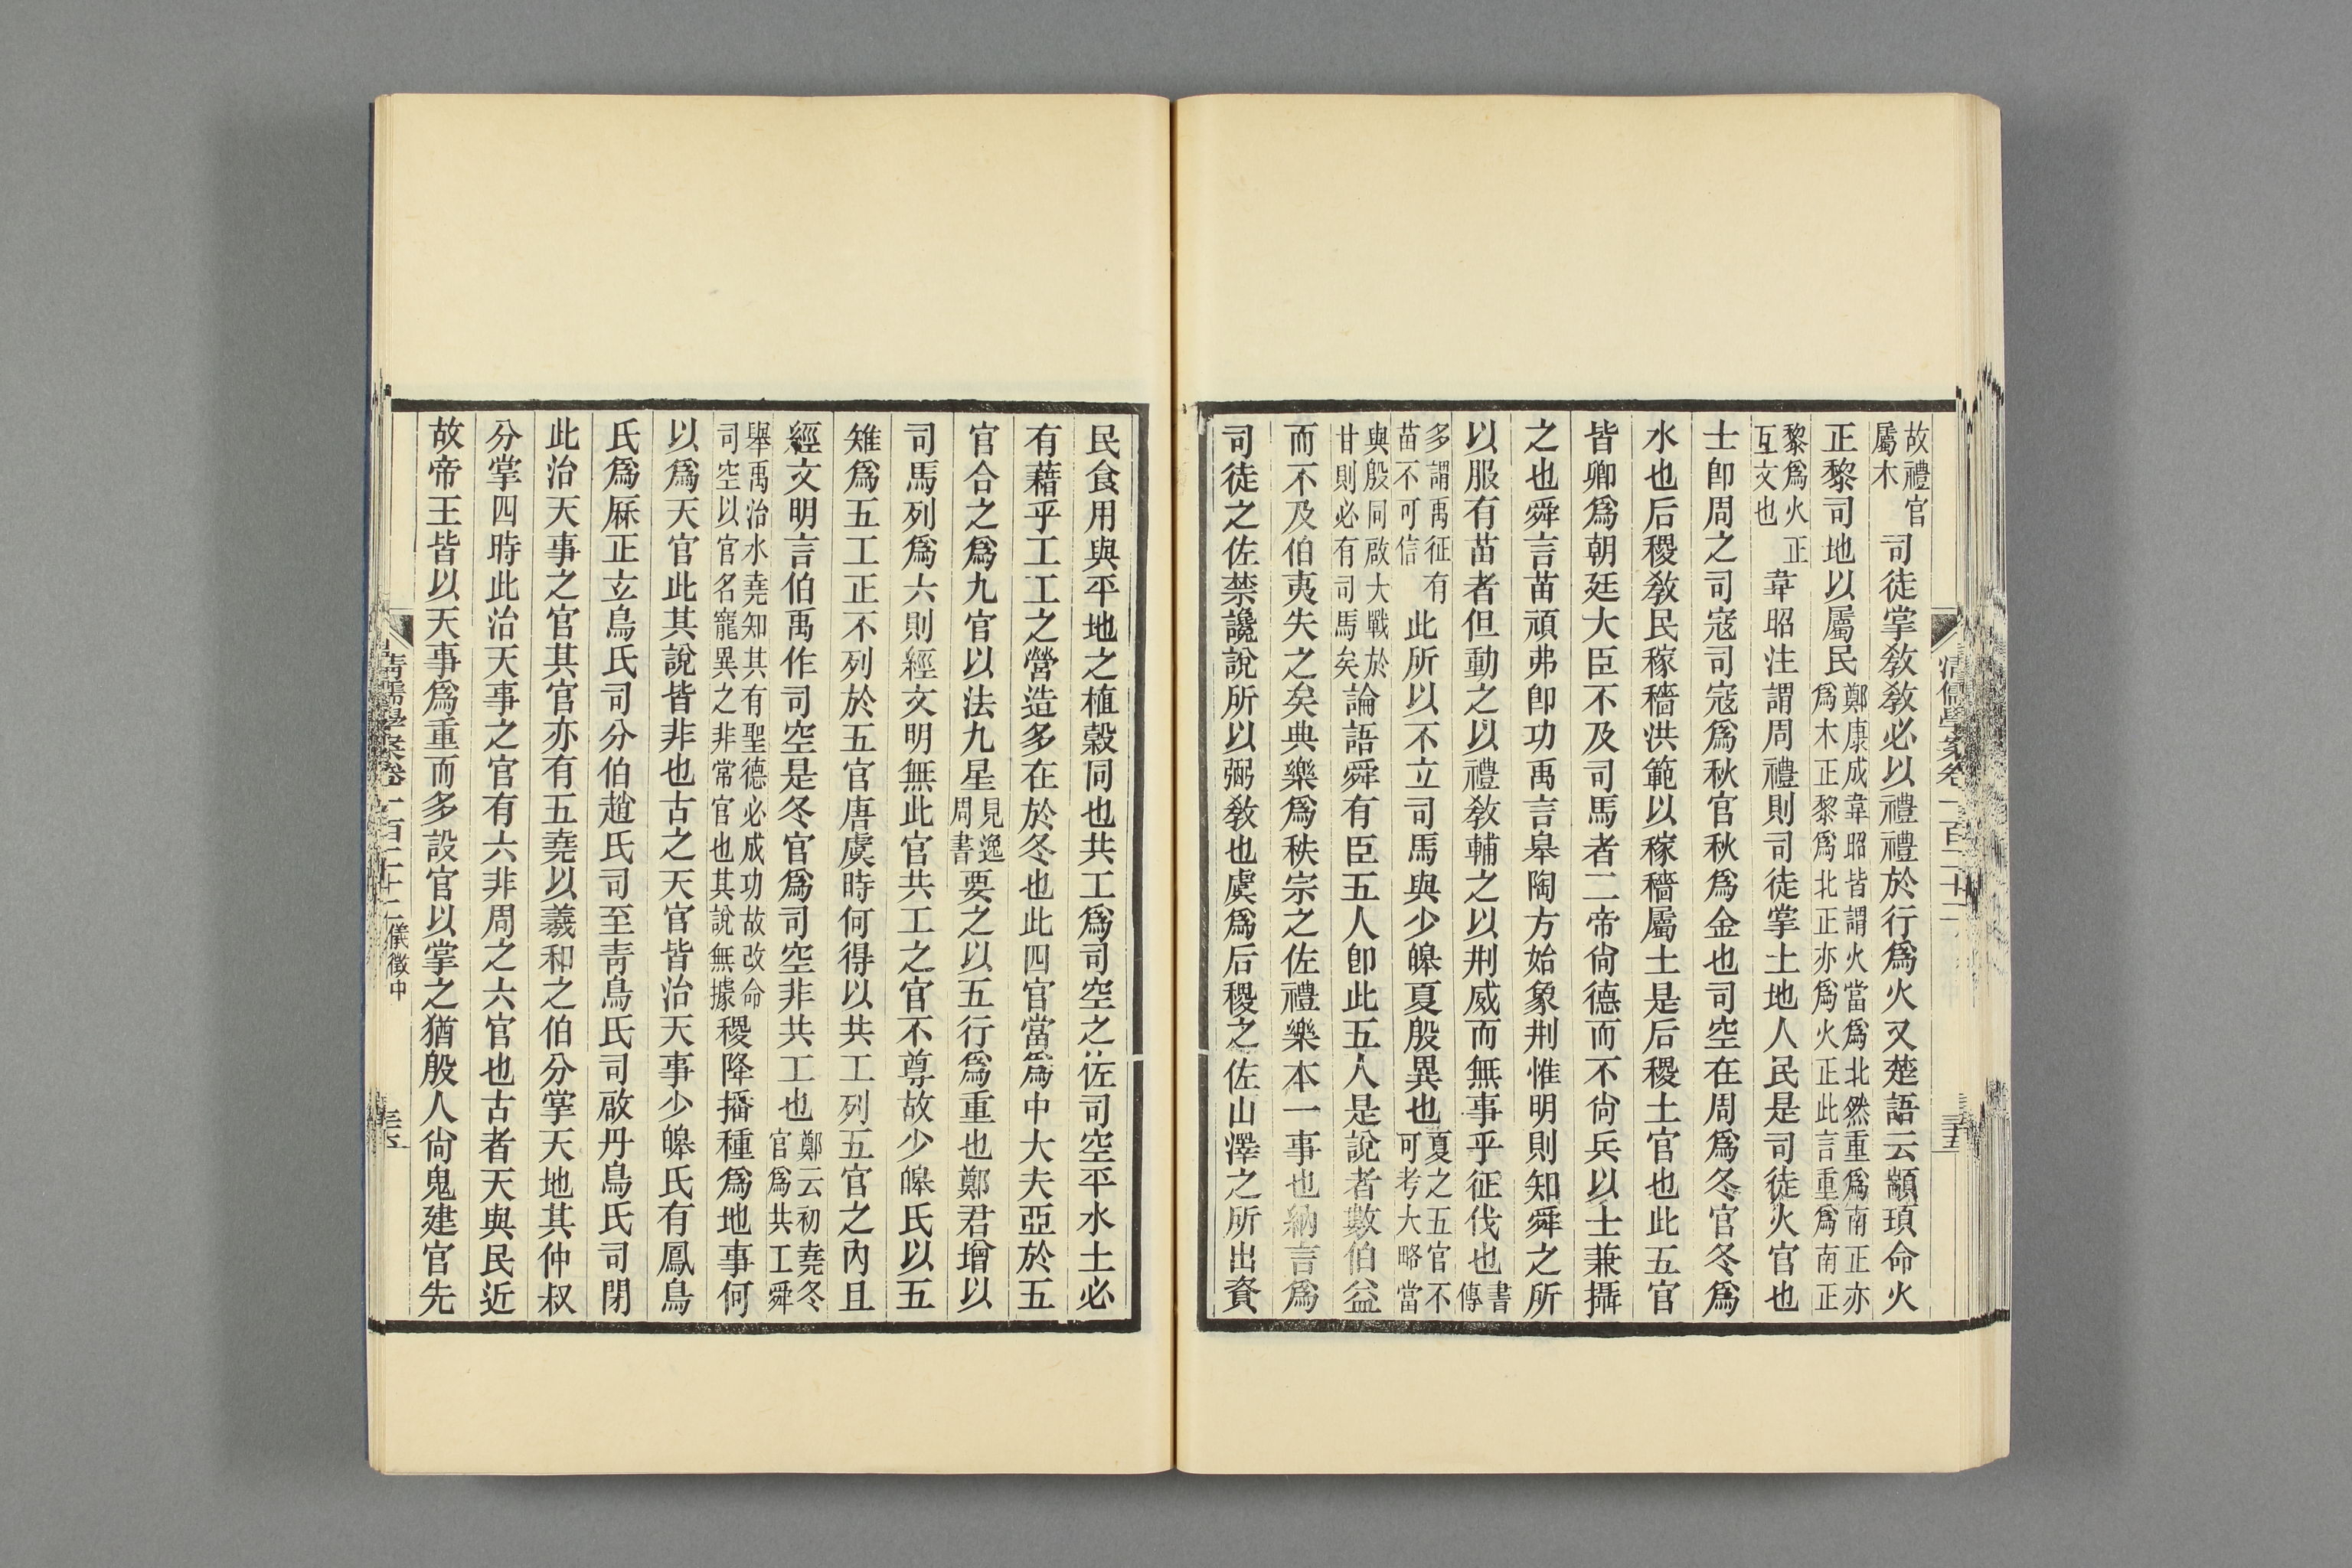 故禮官屬木司徒掌敎敎必以禮禮於行爲火又楚語云顓頊命火
正黎司地以屬民鄭康成韋昭皆謂火當爲北然重爲南正亦爲木正黎爲北正亦爲火正此言重爲南正
黎爲火正互文也韋昭注謂周禮則司徒掌土地人民是司徒火官也
士卽周之司寇司寇爲秋官秋爲金也司空在周爲冬官冬爲
水也后稷敎民稼穡洪範以稼穡屬土是后稷土官也此五官
皆卿爲朝廷大臣不及司馬者二帝尙德而不尙兵以士兼攝
之也舜言苗頑弗卽功禹言皋陶方始象刑惟明則知舜之所
以服有苗者但動之以禮敎輔之以刑威而無事乎征伐也書傳
多謂禹征有苗不可信此所以不立司馬與少皞夏殷異也夏之五官不可考大略當
與殷同啟大戰於甘則必有司馬矣論語舜有臣五人卽此五人是說者數伯益
而不及伯夷失之矣典樂爲秩宗之佐禮樂本一事也納言爲
司徒之佐禁讒說所以弼敎也虞爲后稷之佐山澤之所出資
民食用與平地之植穀同也共工爲司空之佐司空平水土必
有藉乎工工之營造多在於冬也此四官當爲中大夫亞於五
官合之爲九官以法九星見逸周書要之以五行爲重也鄭君增以
司馬列爲六則經文明無此官共工之官不尊故少皞氏以五
雉爲五工正不列於五官唐虞時何得以共工列五官之內且
經文明言伯禹作司空是冬官爲司空非共工也鄭云初堯冬官爲共工舜
舉禹治水堯知其有聖德必成功故改命司空以官名寵異之非常官也其說無據稷降播種爲地事何
以爲天官此其說皆非也古之天官皆治天事少皞氏有鳳鳥
氏爲厤正玄鳥氏司分伯趙氏司至靑鳥氏司啟丹鳥氏司閉
此治天事之官其官亦有五堯以羲和之伯分掌天地其仲叔
分掌四時此治天事之官有六非周之六官也古者天與民近
故帝王皆以天事爲重而多設官以掌之猶殷人尙鬼建官先
清儒學案卷一百二十二 儀徵中